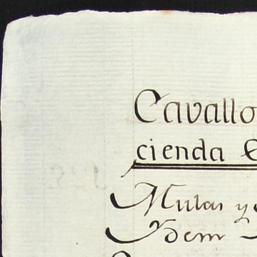 Cavallo
cienda
Mulas y
Ydem